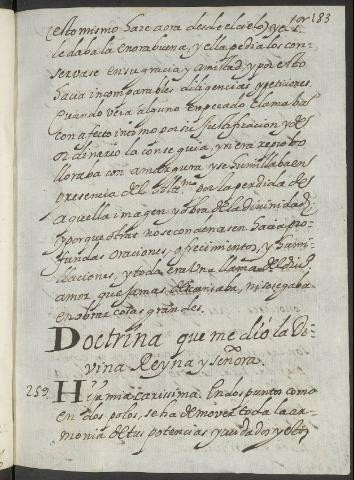 (esto mismo haze aora desde el cielo) ya
le daba la enorabuena, y ella pedia los con-
servase en su gracia y amistad, y por esto
hacia incomparables diligencias, y peticiones.
Quando veia alguno en pecado clamaba
con afecto intimo por su justificacion, y de
ordinario la conseguia, y si era reprobo
lloraba con amargura y se humillaba en
presencia del por la perdida de
aquella imagen y obra de la divinidad;
y porque otras no se condenasen hacia pro-
fundas oraciones, ofrecimientos, y humi-
llaciones, y toda era una llama del
amor, que jamas descansaba, ni sosegaba
en obrar cosas grandes.
Doctrina que me dio la Di-
vina Reyna y señora.
259. Hija mia carissima. En dos puntos como
en dos polos, se ha de mover toda la ar-
monia de tus potencias y cuidados y estos
183